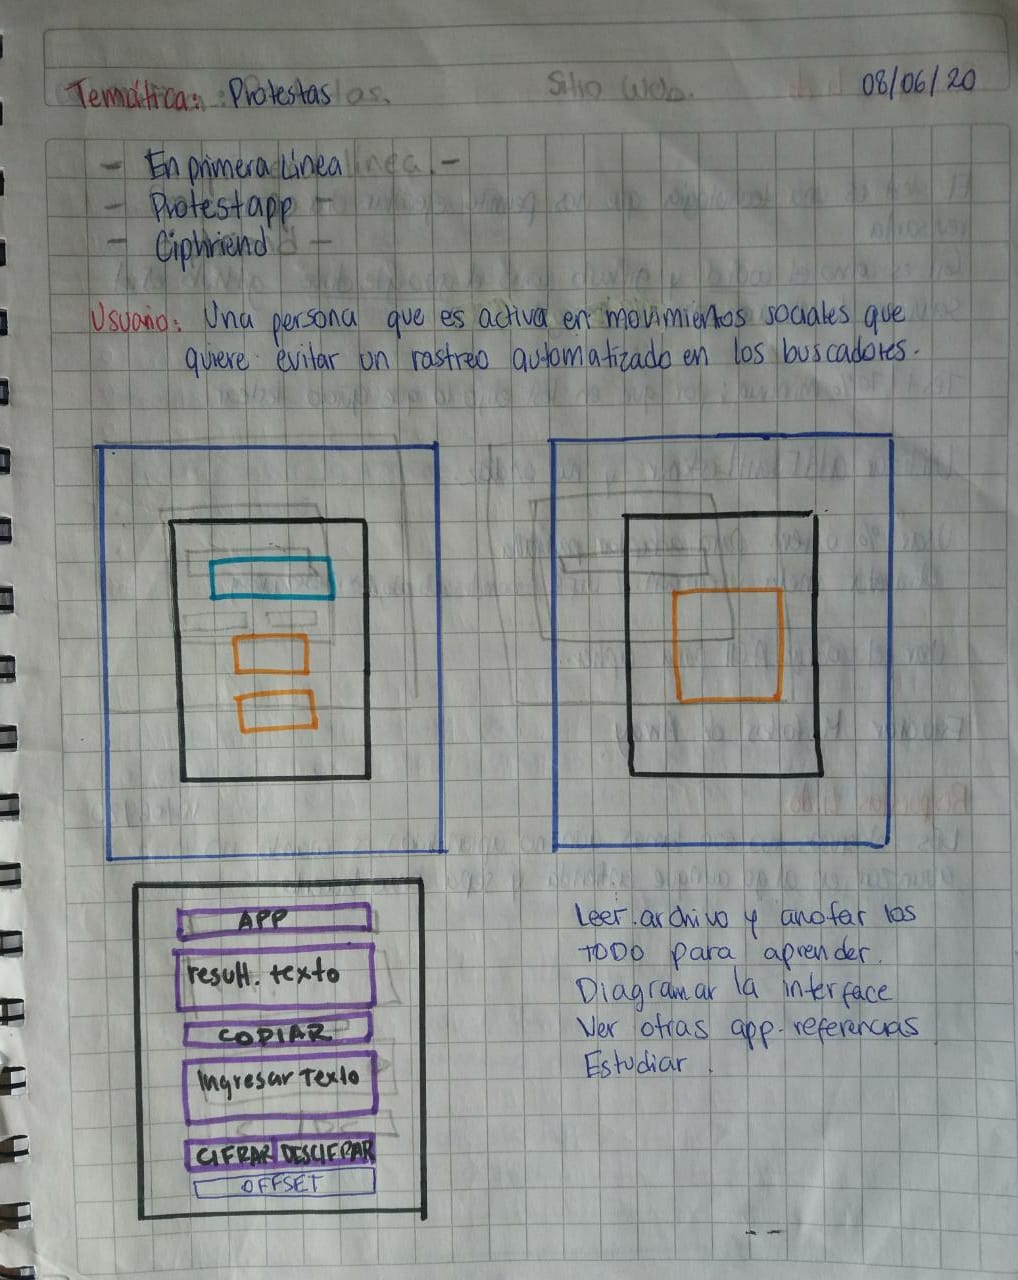 Temática: Protestas
Sitio Web.
08/06/20
- En primera Línea -
- Protestapp -
- Ciphriend -
Usuario: Una persona que es activa en movimientos sociales que
quiere evitar un rastreo automatizado en los buscadores.
APP
result. texto
COPIAR
Ingresar Texto
CIFRAR DESCIFRAR
OFFSET
Leer archivo y anotar los
TODO para aprender.
Diagramar la interface
Ver otras app-referencias
Estudiar.